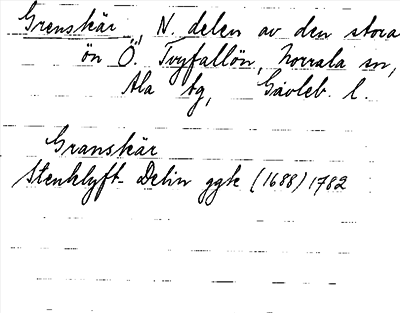 Grenskär, N. delen av den stora
ön Ö. Tvyfallön, Norrala sn,
Ala tg, Gävleb. l.
Granskär
Stenklyft- Delin ggk (1688) 1782